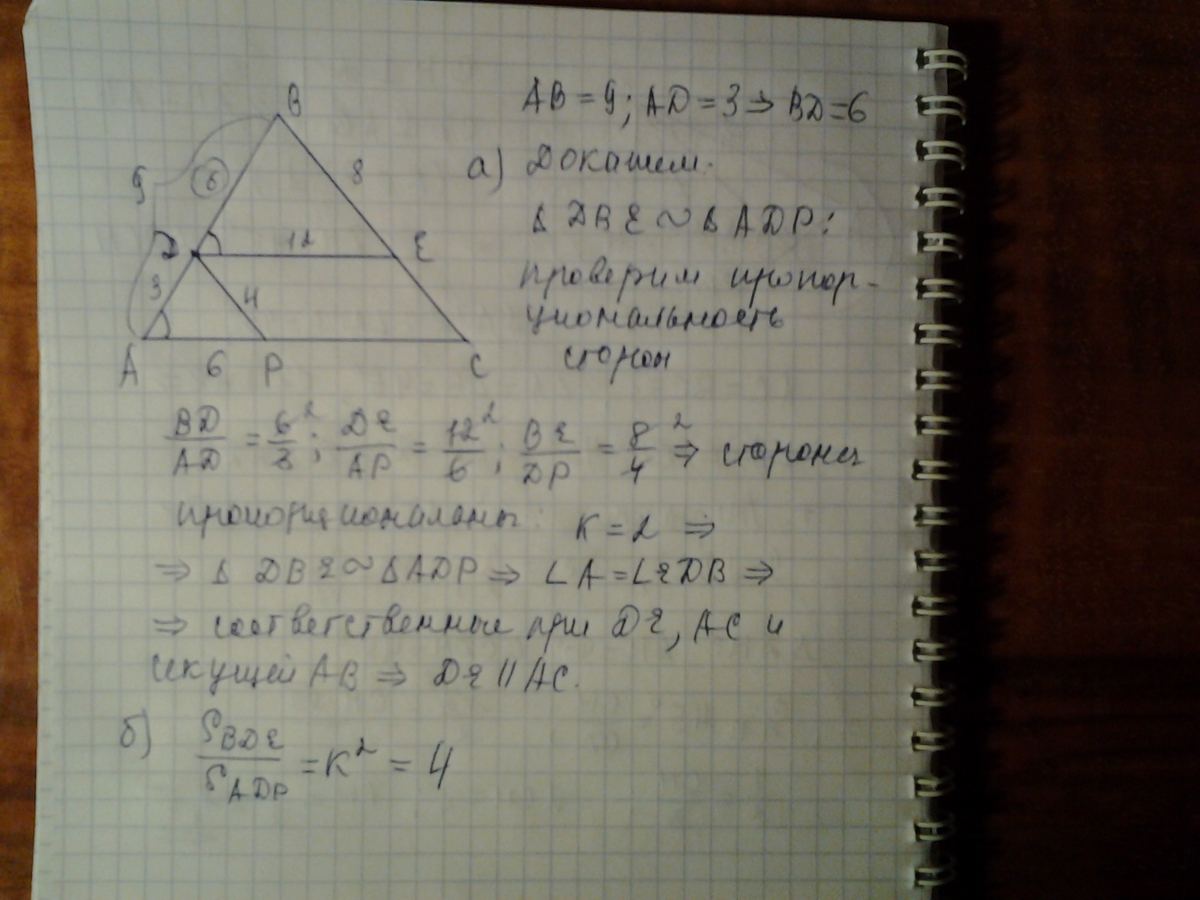 AB = 9; AD = 3 ⇒ BD = 6
а) Докажем.
Δ DBE ~ Δ ADP:
проверим пропор-
циональность
сторон
B
9
6
8
D
12
E
3
4
A
6
P
C
BD/AD = 6/3 2; DE/AP = 12/6 2; BE/DP = 8/4 2 ⇒ стороны
пропорциональны: K = 2 ⇒
⇒ Δ DBE ~ Δ ADP ⇒ ∠A = ∠EDB ⇒
⇒ соответственные при DE, AC и
секущей AB ⇒ DE || AC.
б) S_BDE/S_ADP = K² = 4